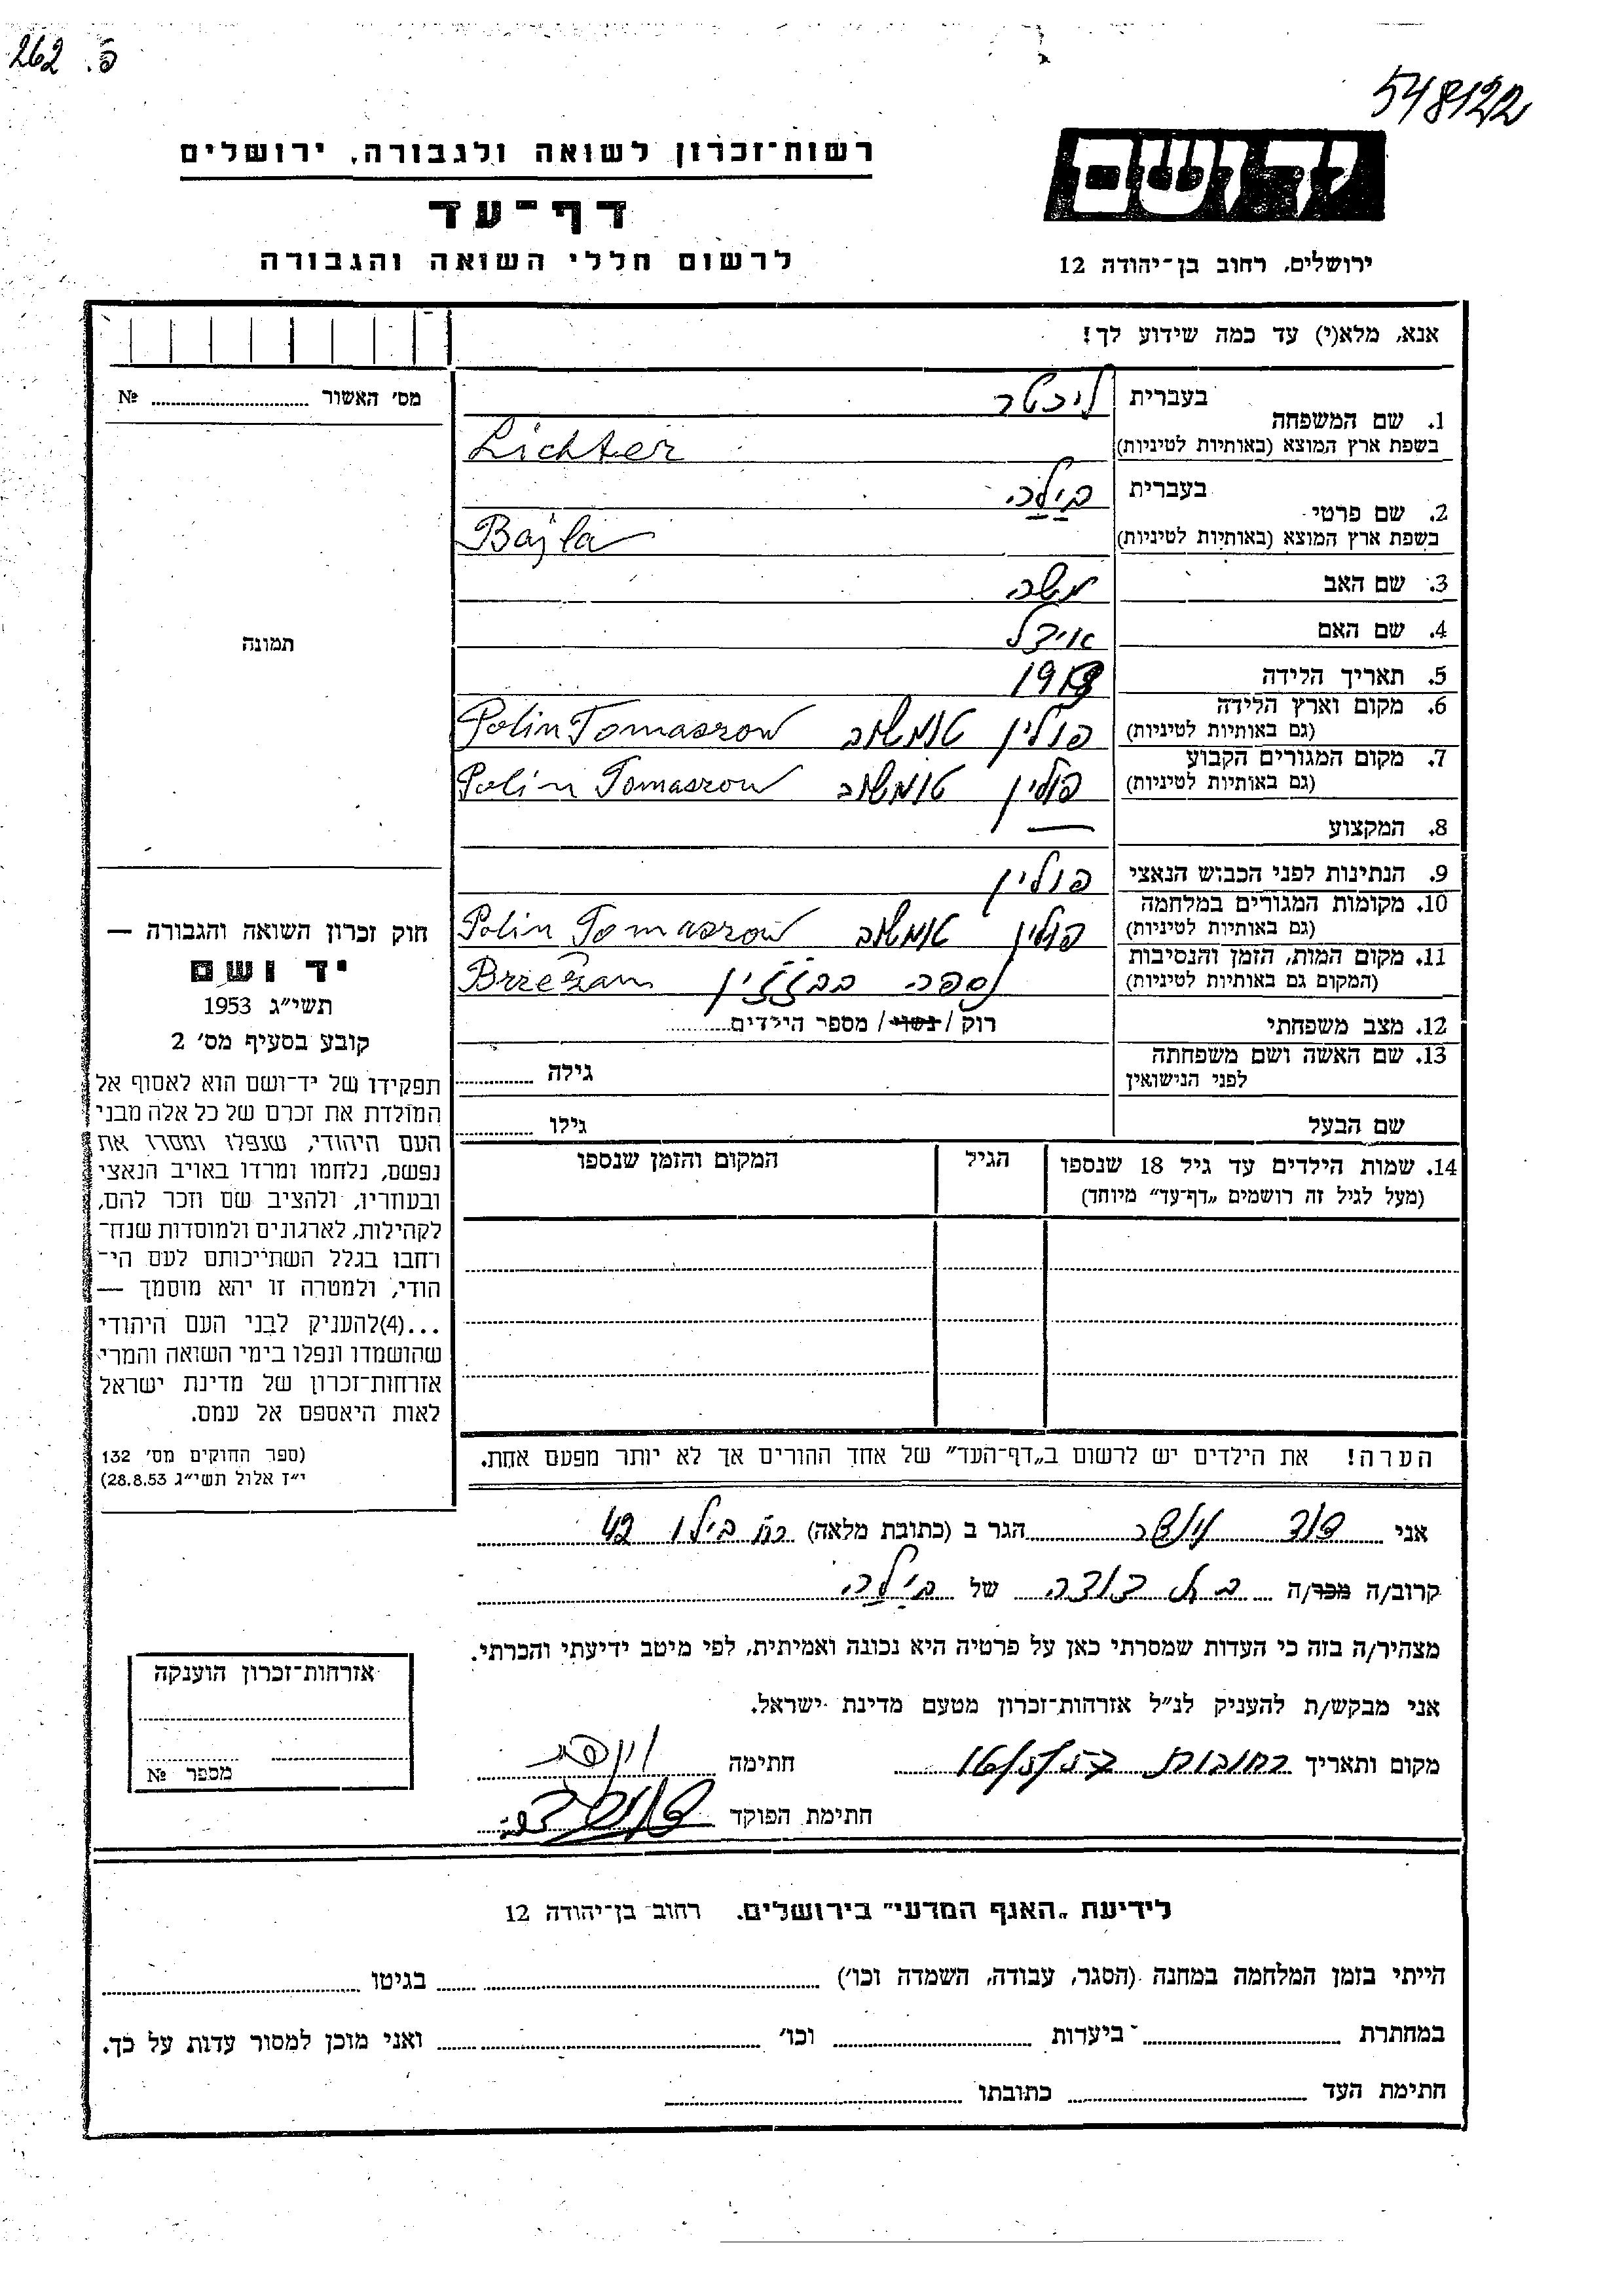 262 פ.
548122
רשות־זכרון לשואה ולגבורה, ירושלים
דף־עד
לרשום חללי השואה והגבורה
יד ושם
ירושלים, רחוב בן־יהודה 12
אנא, מלא(י) עד כמה שידוע לך!
מס' האשור № 
1. שם המשפחה
בעברית ליכטר
בשפת ארץ המוצא (באותיות לטיניות) Lichter
2. שם פרטי
בעברית בילה
בשפת ארץ המוצא (באותיות לטיניות) Bajla
3. שם האב משה
4. שם האם אידל
5. תאריך הלידה
6. מקום וארץ הלידה
(גם באותיות לטיניות) פולין טומשוב Polin Tomaszow
7. מקום המגורים הקבוע
(גם באותיות לטיניות) פולין טומשוב Polin Tomaszow
8. המקצוע —
9. הנתינות לפני הכבוש הנאצי פולין
10. מקומות המגורים במלחמה
(גם באותיות לטיניות) פולין טומשוב Polin Tomaszow
11. מקום המות, הזמן והנסיבות
(המקום גם באותיות לטיניות) נספה
12. מצב משפחתי רוק / נשוי / מספר הילדים
13. שם האשה ושם משפחתה
לפני הנישואין גילה
שם הבעל גילו
14. שמות הילדים עד גיל 18 שנספו
(מעל לגיל זה רושמים „דף־עד” מיוחד)
הגיל
המקום והזמן שנספו
הערה! את הילדים יש לרשום ב„דף־העד” של אחד ההורים אך לא יותר מפעם אחת.
תמונה
חוק זכרון השואה והגבורה —
יד ושם
תשי״ג 1953
קובע בסעיף מס' 2
תפקידו של יד־ושם הוא לאסוף אל
המולדת את זכרם של כל אלה מבני
העם היהודי, שנפלו ומסרו את
נפשם, נלחמו ומרדו באויב הנאצי
ובעוזריו, ולהציב שם וזכר להם,
לקהילות, לארגונים ולמוסדות שנח־
רחבו בגלל השתייכותם לעם הי־
הודי, ולמטרה זו יהא מוסמך —
...(4)להעניק לבני העם היהודי
שהושמדו ונפלו בימי השואה והמרי
אזרחות־זכרון של מדינת ישראל
לאות היאספם אל עמם.
(ספר החוקים מס' 132
י״ז אלול תשי״ג 28.8.53)
אני דוד הגר ב (כתובת מלאה) רח בילו 42
קרוב/ה מכר/ה בת דודה של בילה
מצהיר/ה בזה כי העדות שמסרתי כאן על פרטיה היא נכונה ואמיתית, לפי מיטב ידיעתי והכרתי.
אני מבקש/ת להעניק לנ״ל אזרחות־זכרון מטעם מדינת ישראל.
מקום ותאריך רחובות חתימה
חתימת הפוקד
אזרחות־זכרון הוענקה
מספר №
לידיעת „האגף המדעי” בירושלים. רחוב בן־יהודה 12
הייתי בזמן המלחמה במחנה (הסגר, עבודה, השמדה וכו') בגיטו
במחתרת ביערות וכו' ואני מוכן למסור עדות על כך.
חתימת העד כתובתו